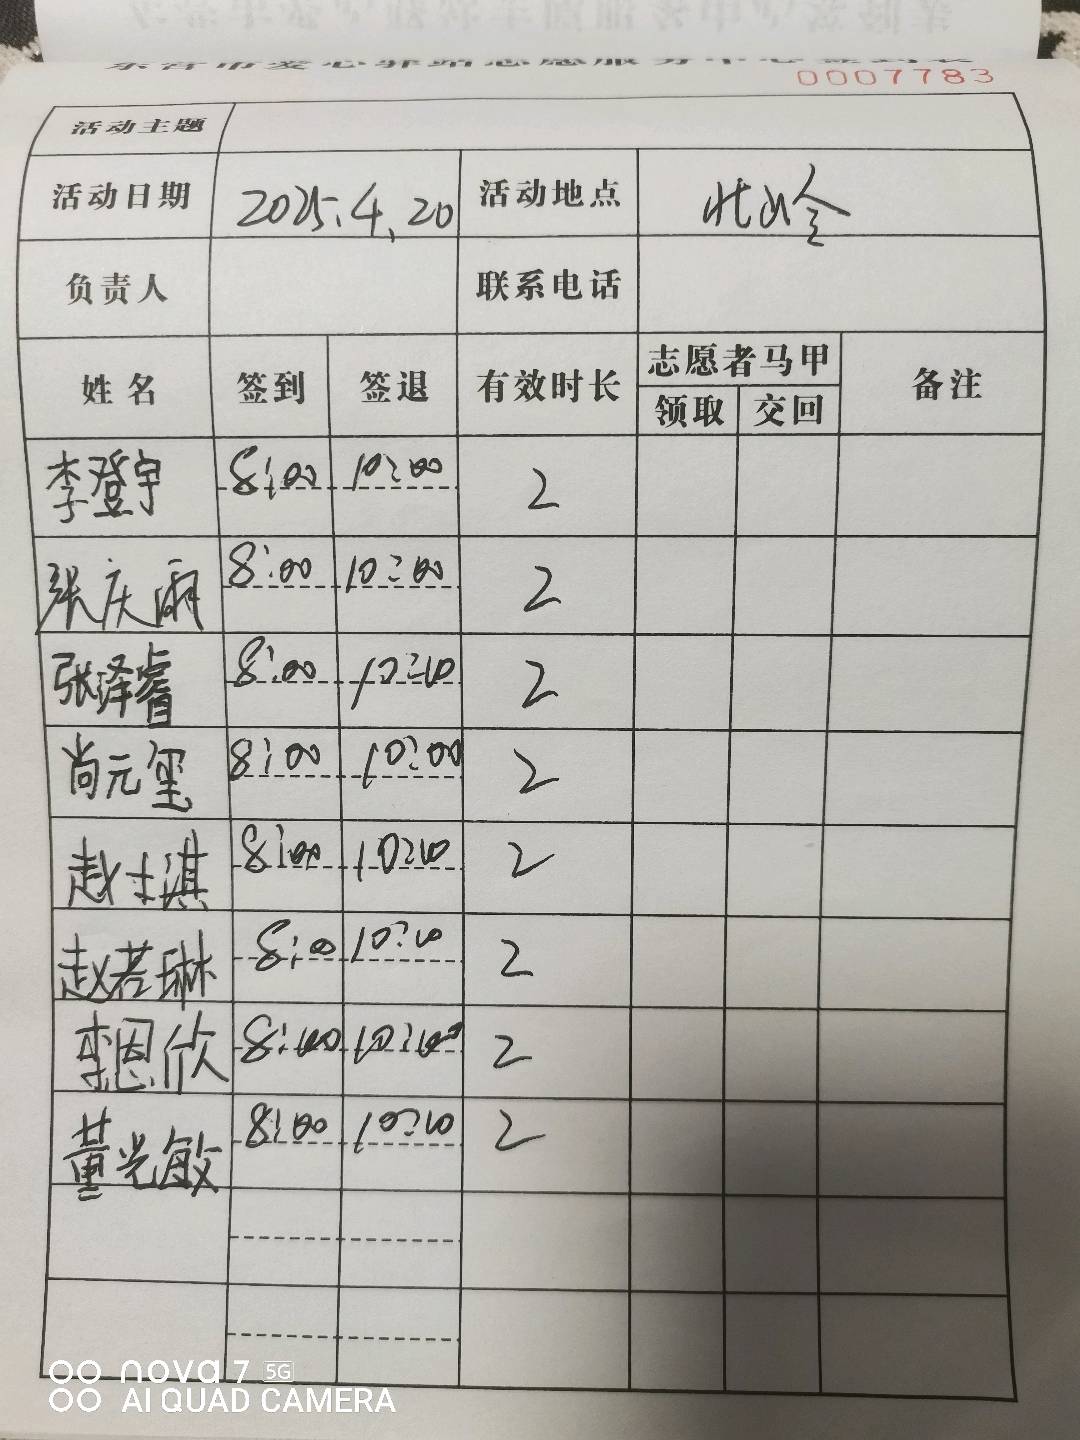 东营市爱心驿站志愿服务中心签到表
0007783
活动主题
活动日期 2025.4.20 活动地点
负责人 联系电话
姓名 签到 签退 有效时长 志愿者马甲 备注
领取 交回
李登宇 8:00 10:00 2
张庆雨 8:00 10:00 2
张泽睿 8:00 10:00 2
尚元玺 8:00 10:00 2
赵士淇 8:00 10:00 2
赵若琳 8:00 10:00 2
李恩欣 8:00 10:00 2
董光敏 8:00 10:00 2
nova 7 5G
AI QUAD CAMERA